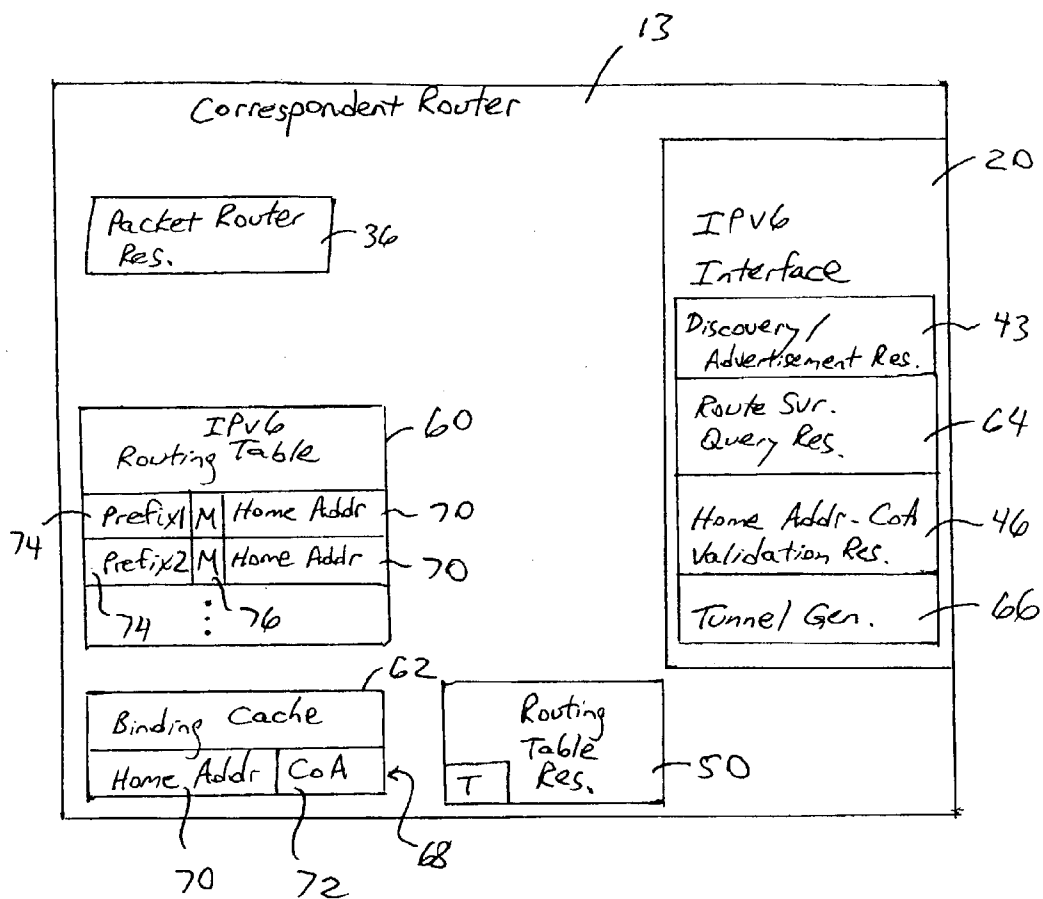 13
Correspondent Router
20
IPv6
Interface
Packet Router
Res.
36
Discovery/
Advertisement Res.
43
Route Svr.
Query Res.
64
Home Addr-CoA
Validation Res.
46
Tunnel Gen.
66
IPv6
Routing Table
60
Prefix1 M Home Addr
70
74
Prefix2 M Home Addr
70
74
76
62
Binding Cache
Home Addr CoA
68
70
72
Routing
Table
Res.
T
50